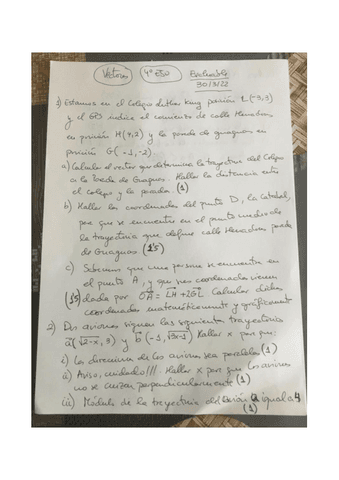 Vectores 4º ESO Evaluable
30/3/22
1) Estamos en el Colegio Luther King posición L(-3,3)
y el GO indica el comienzo de calle Heradores
en posición H(4,2) y la parada de guaguas en
posición G(-1,-2)
a) Calcula el vector que determina la trayectoria del Colegio
a la Parada de Guaguas. Hallar la distancia entre
el colegio y la parada (1)
b) Hallar las coordenadas del punto D, la Catedral,
para que se encuentre en el punto medio de
la trayectoria que define calle Heradores parada
de Guaguas (1'5)
c) Sabemos que una persona se encuentra en
el punto A, y que sus coordenadas vienen
(1'5) dada por OA = LH + LGL Calcular dichas
coordenadas matemáticamente y gráficamente
2) Dos aviones siguen las siguiente trayectoria
a(√2-x, 3) y b(-1, √3x-1) Hallar x para que:
i) La dirección de los aviones sea paralela (1)
ii) Aviso, cuidado!!! Hallar x para que los aviones
no se cruzan perpendicularmente (1)
iii) Módulo de la trayectoria del avión a igual a 4
(1)